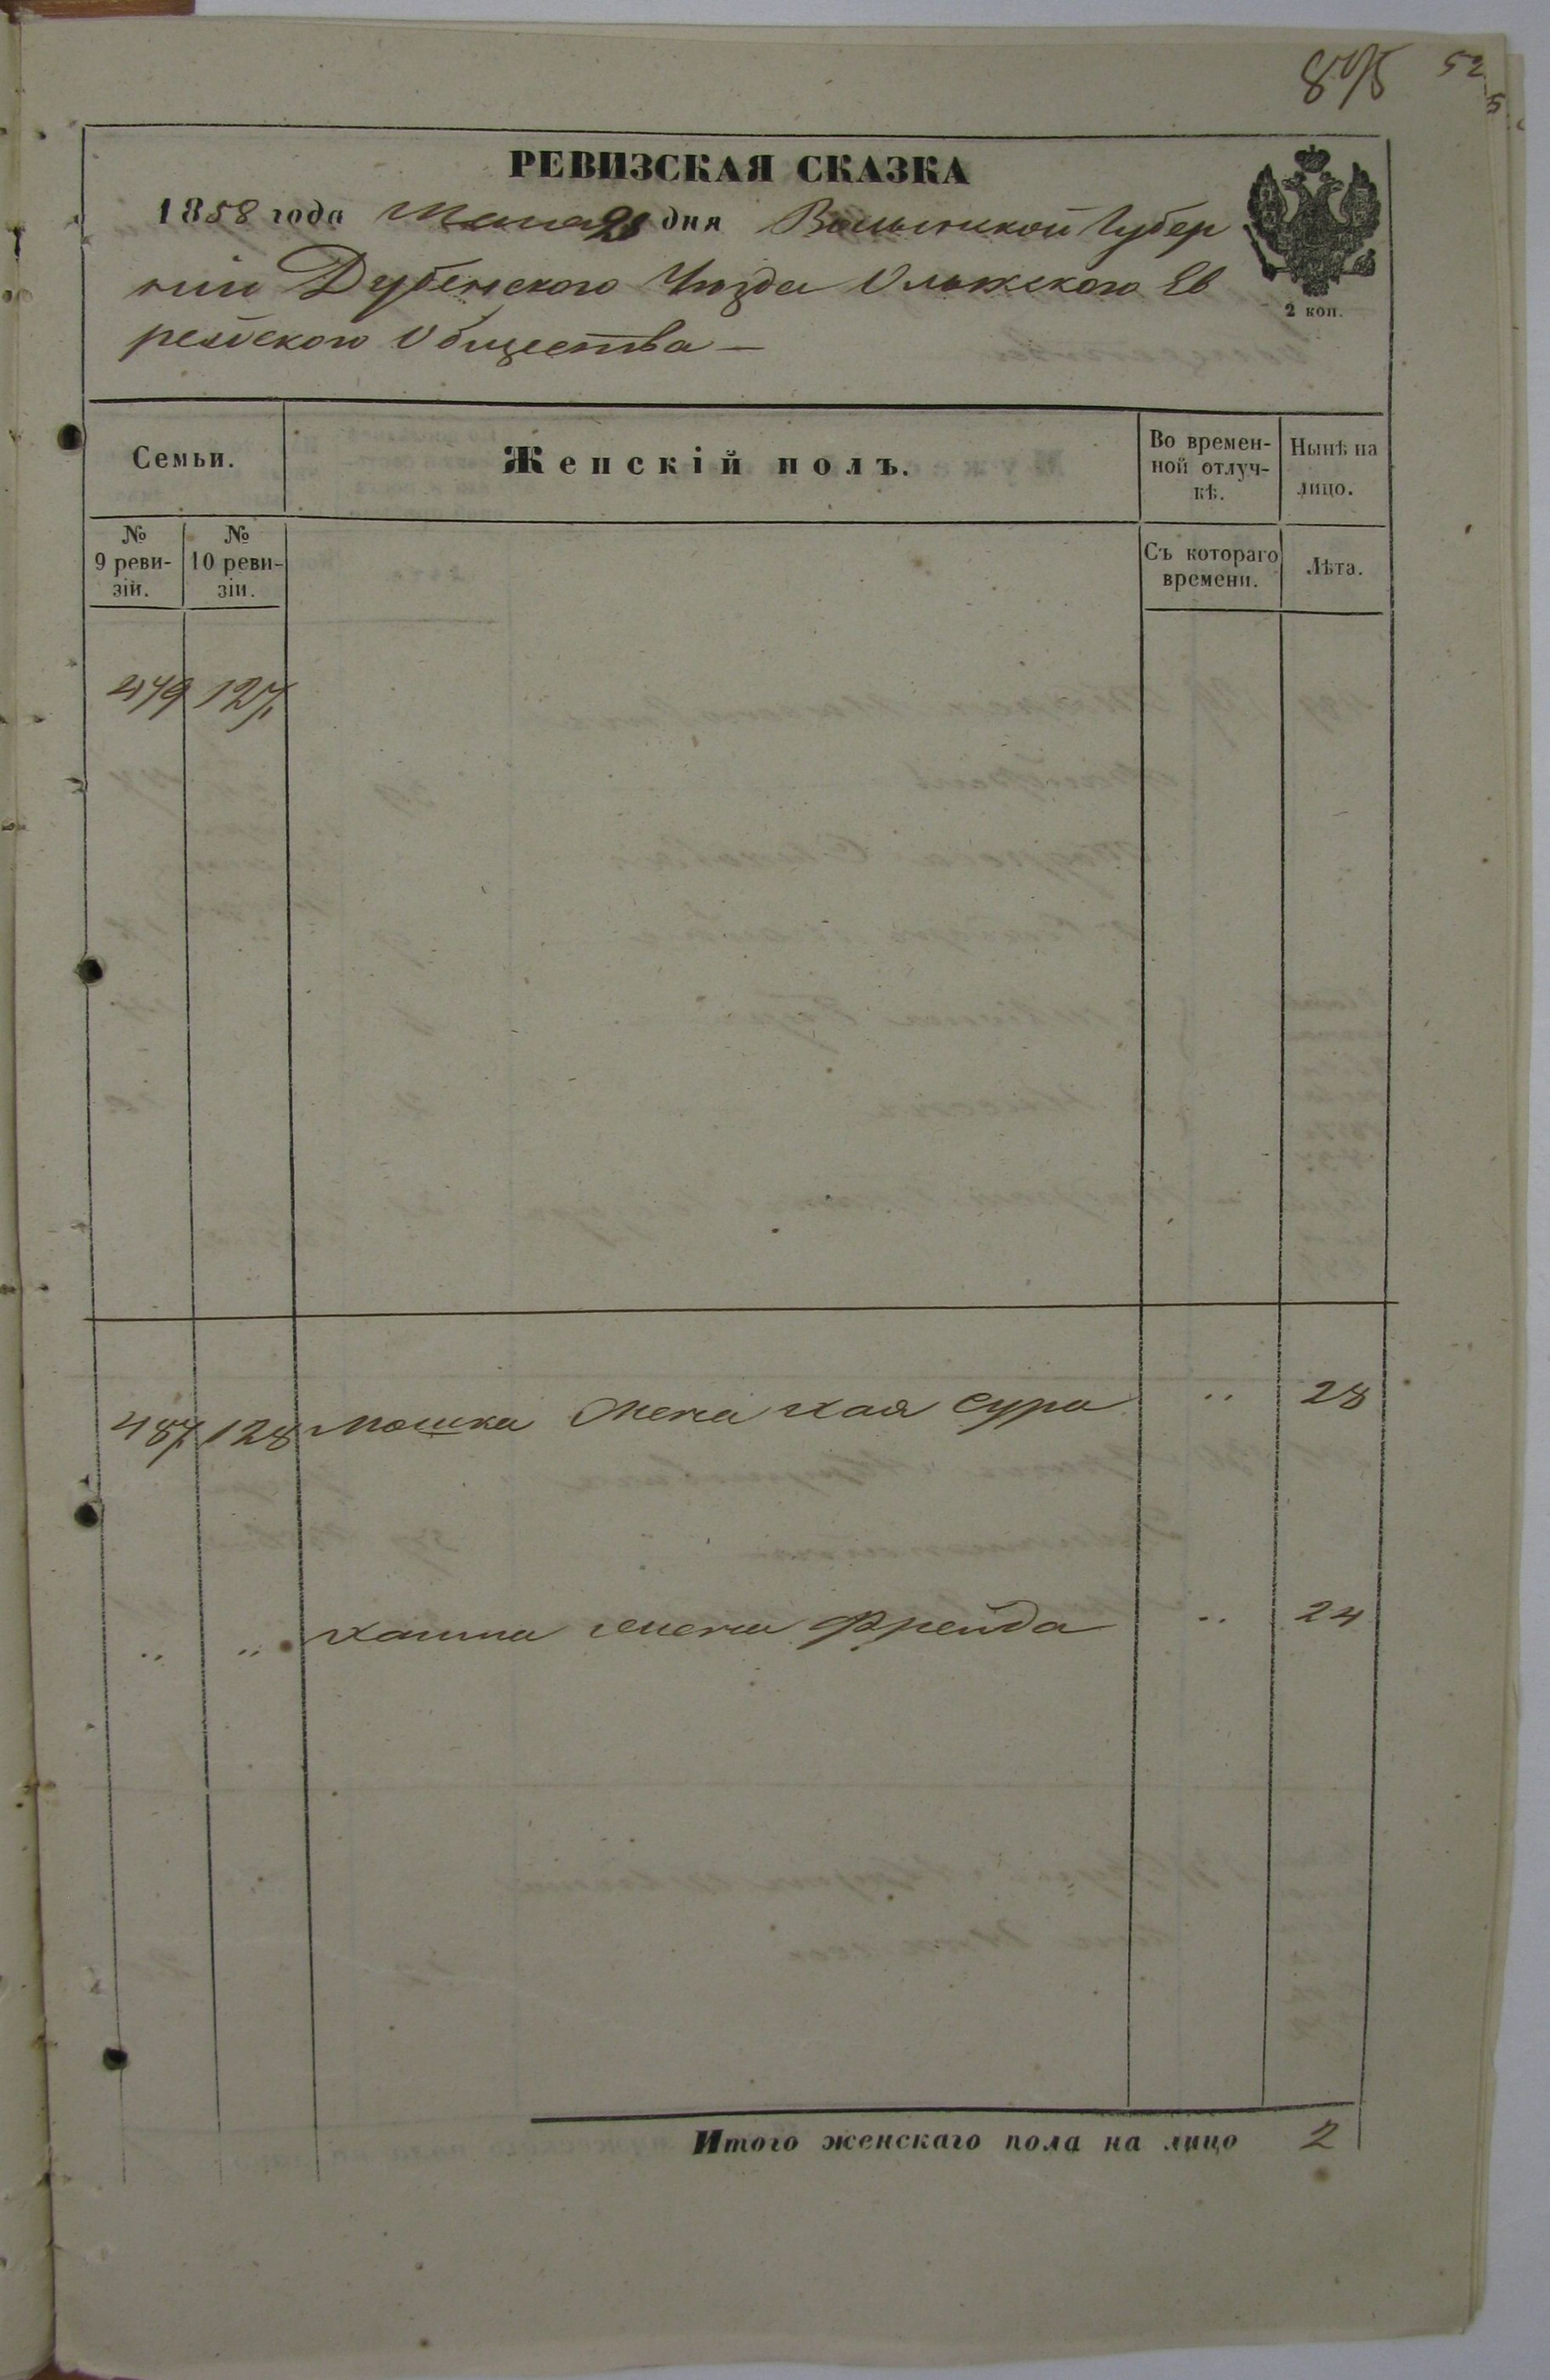 52
РЕВИЗСКАЯ СКАЗКА
1858 года Мая 21 дня Волынской Губер
ніи Дубенского Уѣзда Олыкского Ев
рейского Общества —
2 коп.
Семьи.
Женскій полъ.
Во времен-
ной отлуч-
кѣ.
Нынѣ на
лицо.
№
9 реви-
зіи.
№
10 реви-
зіи.
Съ котораго
времени.
Лѣта.
479 127
487 128 Мошка жена Хая Сура .. 28
.. .. Хаима жена Фрейда .. 24
Итого женскаго пола на лицо 2